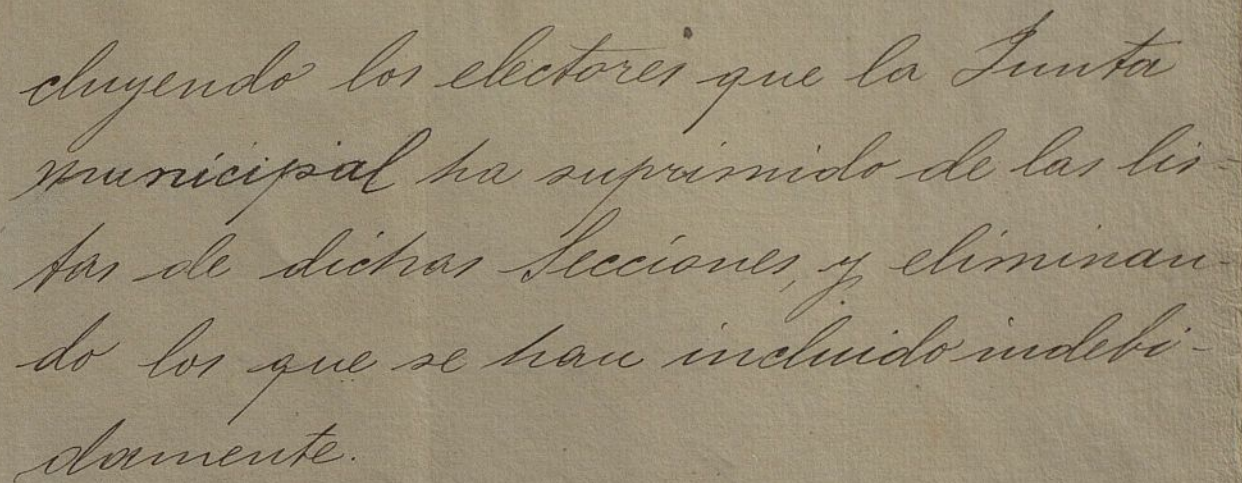 cluyendo los electores que la Junta
municipal ha suprimido de las lis-
tas de dichas Secciones, y eliminan-
do los que se han incluido indebi-
damente.